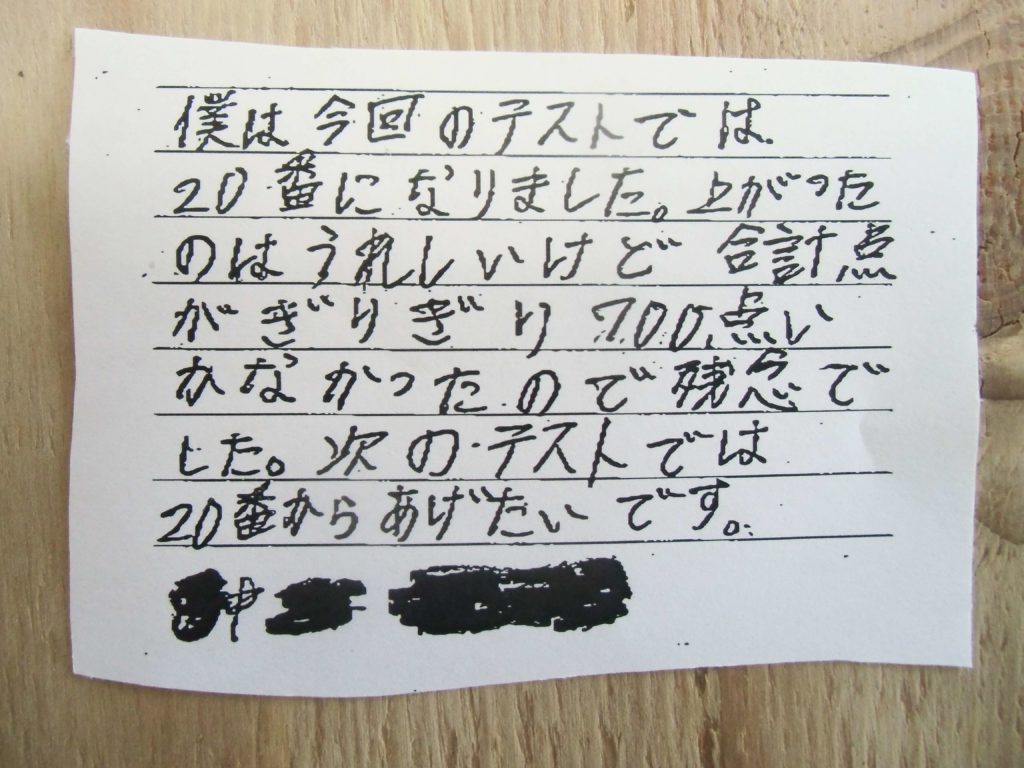 僕は今回のテストでは
20番になりました。上がった
のはうれしいけど合計点
がぎりぎり700点い
かなかったので残念で
した。次のテストでは
20番からあげたいです。